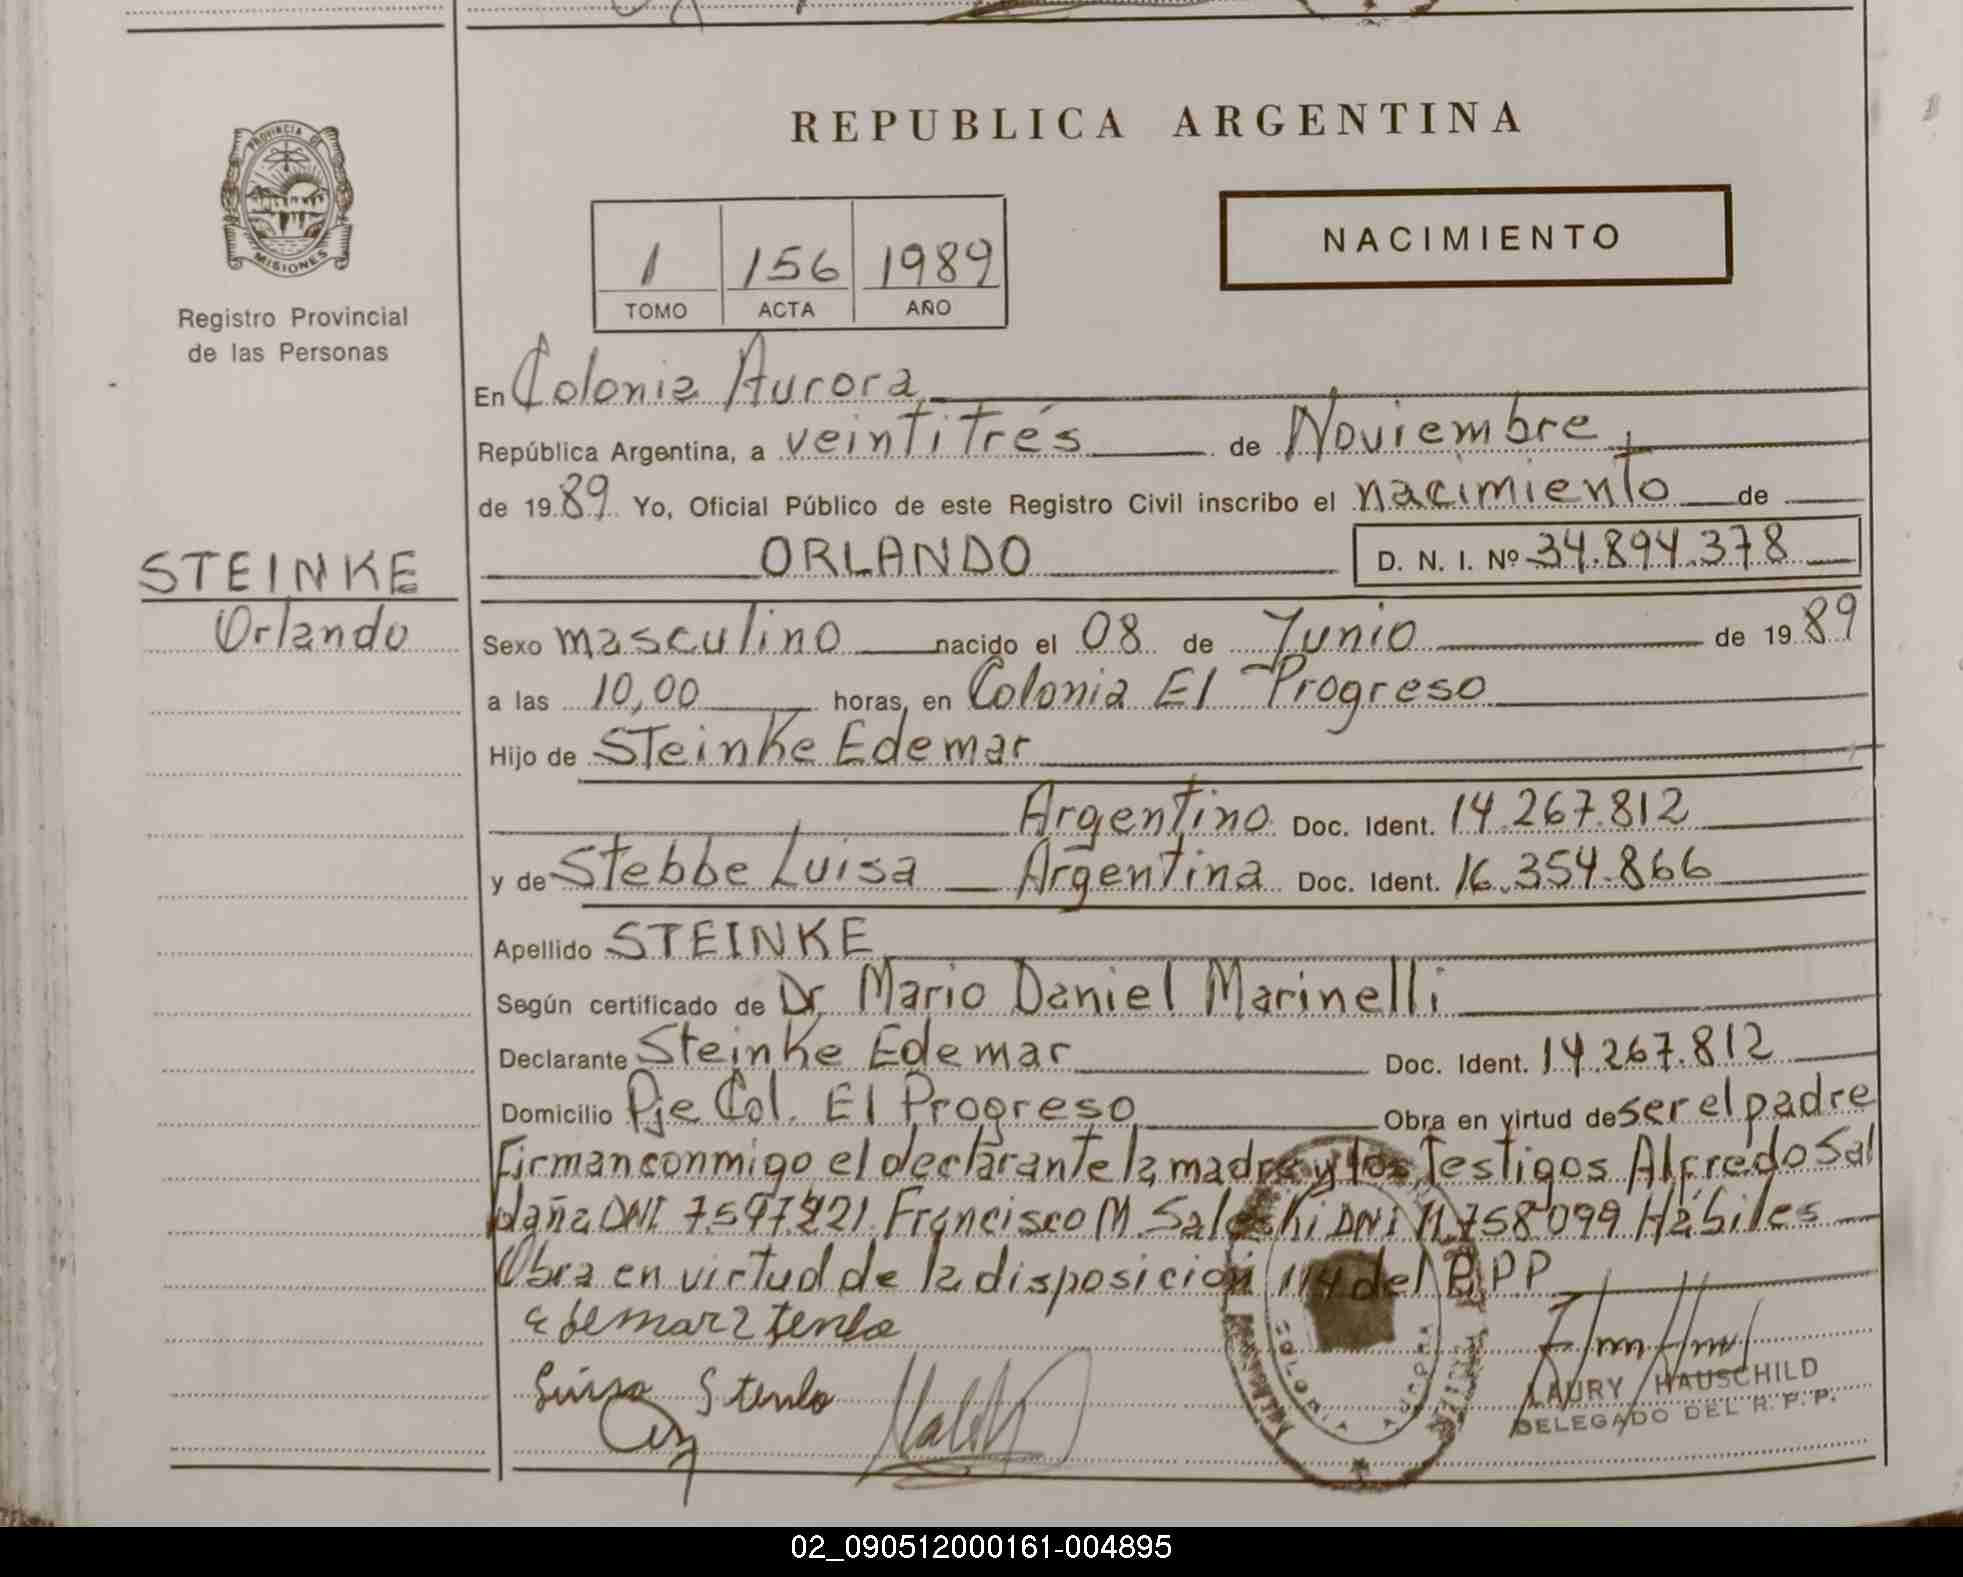 REPUBLICA ARGENTINA
PROVINCIA DE
MISIONES
Registro Provincial
de las Personas
NACIMIENTO
1 156 1989
TOMO ACTA AÑO
En Colonia Aurora
República Argentina, a veintitrés de Noviembre
de 1989 Yo, Oficial Público de este Registro Civil inscribo el nacimiento de
STEINKE
Orlando
ORLANDO D. N. I. Nº 34.894.378
Sexo masculino nacido el 08 de Junio de 1989
a las 10,00 horas, en Colonia El Progreso
Hijo de Steinke Edemar
Argentino Doc. Ident. 14.267.812
y de Stebbe Luisa Argentina Doc. Ident. 16.354.866
Apellido STEINKE
Según certificado de Dr. Mario Daniel Marinelli
Declarante Steinke Edemar Doc. Ident. 14.267.812
Domicilio Pje Col. El Progreso Obra en virtud de ser el padre
Firman conmigo el declarante la madre y los Testigos Alfredo Sal
daña DNI Francisco M. DNI 11.758.099 Hábiles
Obra en virtud de la disposición 114 del RPP
COLONIA AURORA
LAURY HAUSCHILD
DELEGADO DEL R.P.P.
02_090512000161-004895